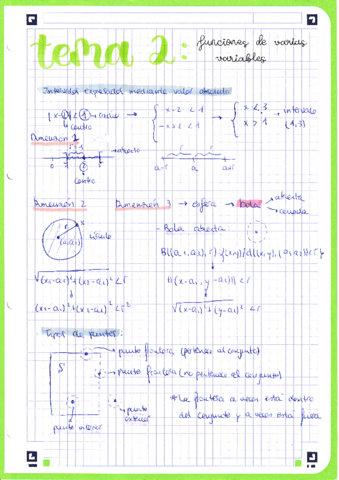 tema 2: funciones de varias
variables
Intervalos expresados mediante valor absoluto
|x-2| < 1 → radio
centro
x-2 < 1
-x+2 < 1
x < 3
x > 1
→ intervalo
(1,3)
Dimensión 1
→ abierto
0 1 2 3
a-r a a+r
centro
Dimensión 2
Dimensión 3 → esfera → bola
abierta
cerrada
r
x
(a1,a2)
círculo
- Bola abierta:
√(x1-a1)²+(x2-a2)² < r
||(x-a1, y-a2)|| < r
(x1-a1)²+(x2-a2)² < r²
√(x-a1)²+(y-a2)² < r
Tipos de puntos:
S
punto frontera (pertenece al conjunto)
punto frontera (no pertenece al conjunto)
punto exterior
punto interior
* La frontera a veces está dentro
del conjunto y a veces está fuera